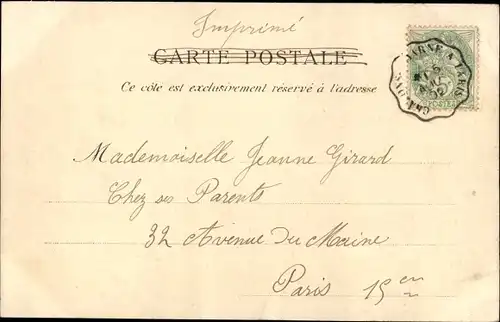 Imprimé
CARTE POSTALE
Ce côté est exclusivement réservé à l'adresse
Mademoiselle Jeanne Girard
Chez ses Parents
32 Avenue Du Maine
Paris 15en
PARIS
POSTES